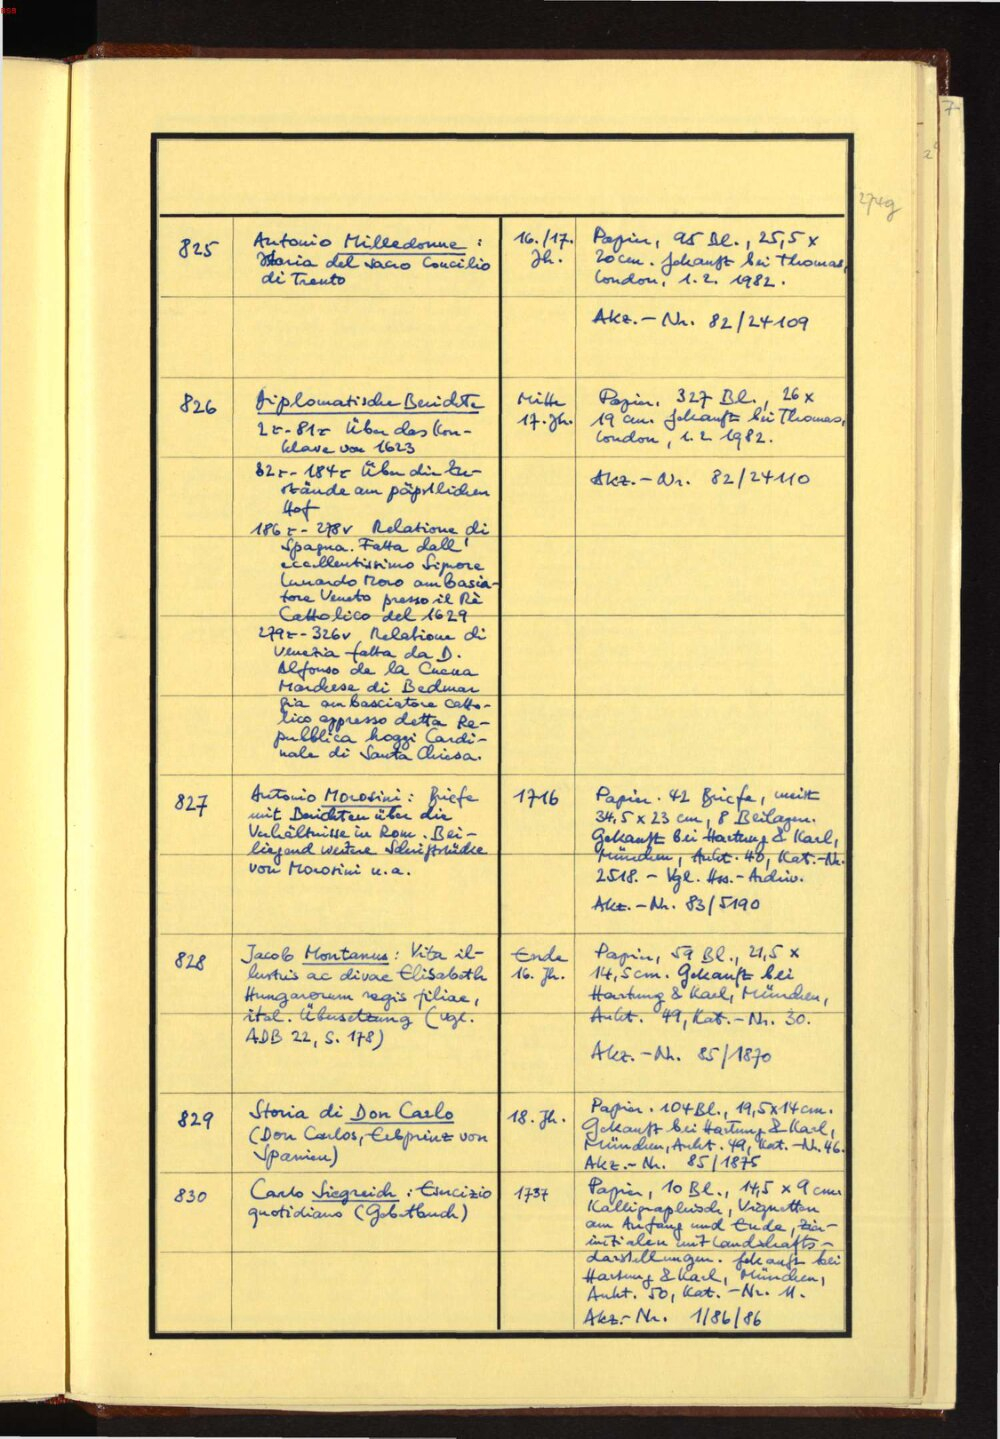 274g
825
Antonio Milledonne :
Storia del sacro Concilio
di Trento
16./17.
Jh.
Papier, 95 Bl., 25,5 x
20 cm. Gekauft bei Thomas,
London, 1. 2. 1982.
Akz.-Nr. 82/24109
826
Diplomatische Berichte
2r-81r Über das Kon-
klave von 1623
82r-184r Über die Zu-
stände am päpstlichen
Hof
186r-278v Relatione di
Spagna. Fatta dall'
eccellentissimo Signore
Lunardo Moro ambascia-
tore Veneto presso il Rè
Cattolico del 1629
279r-326v Relatione di
Venezia fatta da D.
Alfonso de la Cueva
Marchese di Bedmar
già ambasciatore catto-
lico appresso detta Re-
pubblica hoggi Cardi-
nale di Santa Chiesa.
Mitte
17. Jh.
Papier, 327 Bl., 26 x
19 cm. Gekauft bei Thomas,
London, 1. 2. 1982.
Akz.-Nr. 82/24110
827
Antonio Morosini : Briefe
mit Berichten über die
Verhältnisse in Rom. Bei-
liegend weitere Schriftstücke
von Morosini u.a.
1716
Papier. 42 Briefe, meist
34,5 x 23 cm, 8 Beilagen.
Gekauft bei Hartung & Karl,
München, Aukt. 40, Kat.-Nr.
2518. - Vgl. Hss.-Archiv.
Akz.-Nr. 83/5190
828
Jacob Montanus : Vita il-
lustris ac divae Elisabeth
Hungarorum regis filiae,
ital. Übersetzung (vgl.
ADB 22, S. 178)
Ende
16. Jh.
Papier, 59 Bl., 21,5 x
14,5 cm. Gekauft bei
Hartung & Karl, München,
Aukt. 49, Kat.-Nr. 30.
Akz.-Nr. 85/1870
829
Storia di Don Carlo
(Don Carlos, Erbprinz von
Spanien)
18. Jh.
Papier. 104 Bl., 19,5 x 14 cm.
Gekauft bei Hartung & Karl,
München, Aukt. 49, Kat.-Nr. 46.
Akz.-Nr. 85/1875
830
Carlo Siegreich : Esercizio
quotidiano (Gebetbuch)
1737
Papier, 10 Bl., 14,5 x 9 cm.
Kalligraphisch, Vignetten
am Anfang und Ende, Zier-
initialen mit Landschafts-
darstellungen. Gekauft bei
Hartung & Karl, München,
Aukt. 50, Kat.-Nr. 11.
Akz.-Nr. 1/86/86